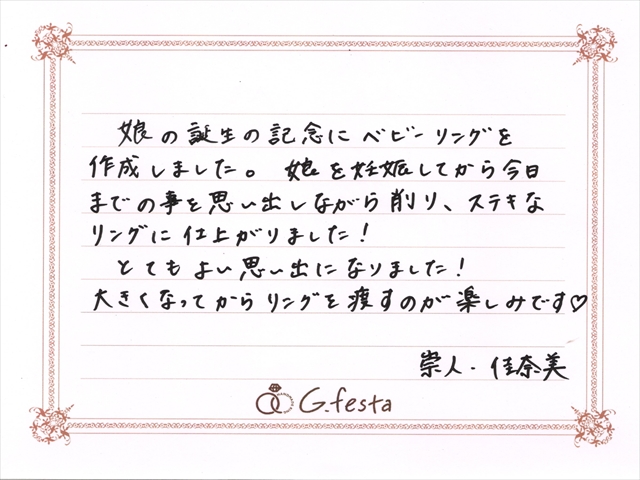 娘の誕生の記念にベビーリングを
作成しました。娘を妊娠してから今日
までの事を思い出しながら削り、ステキな
リングに仕上がりました！
とてもよい思い出になりました！
大きくなってからリングを渡すのが楽しみです♡
崇人・佳奈美
G.festa